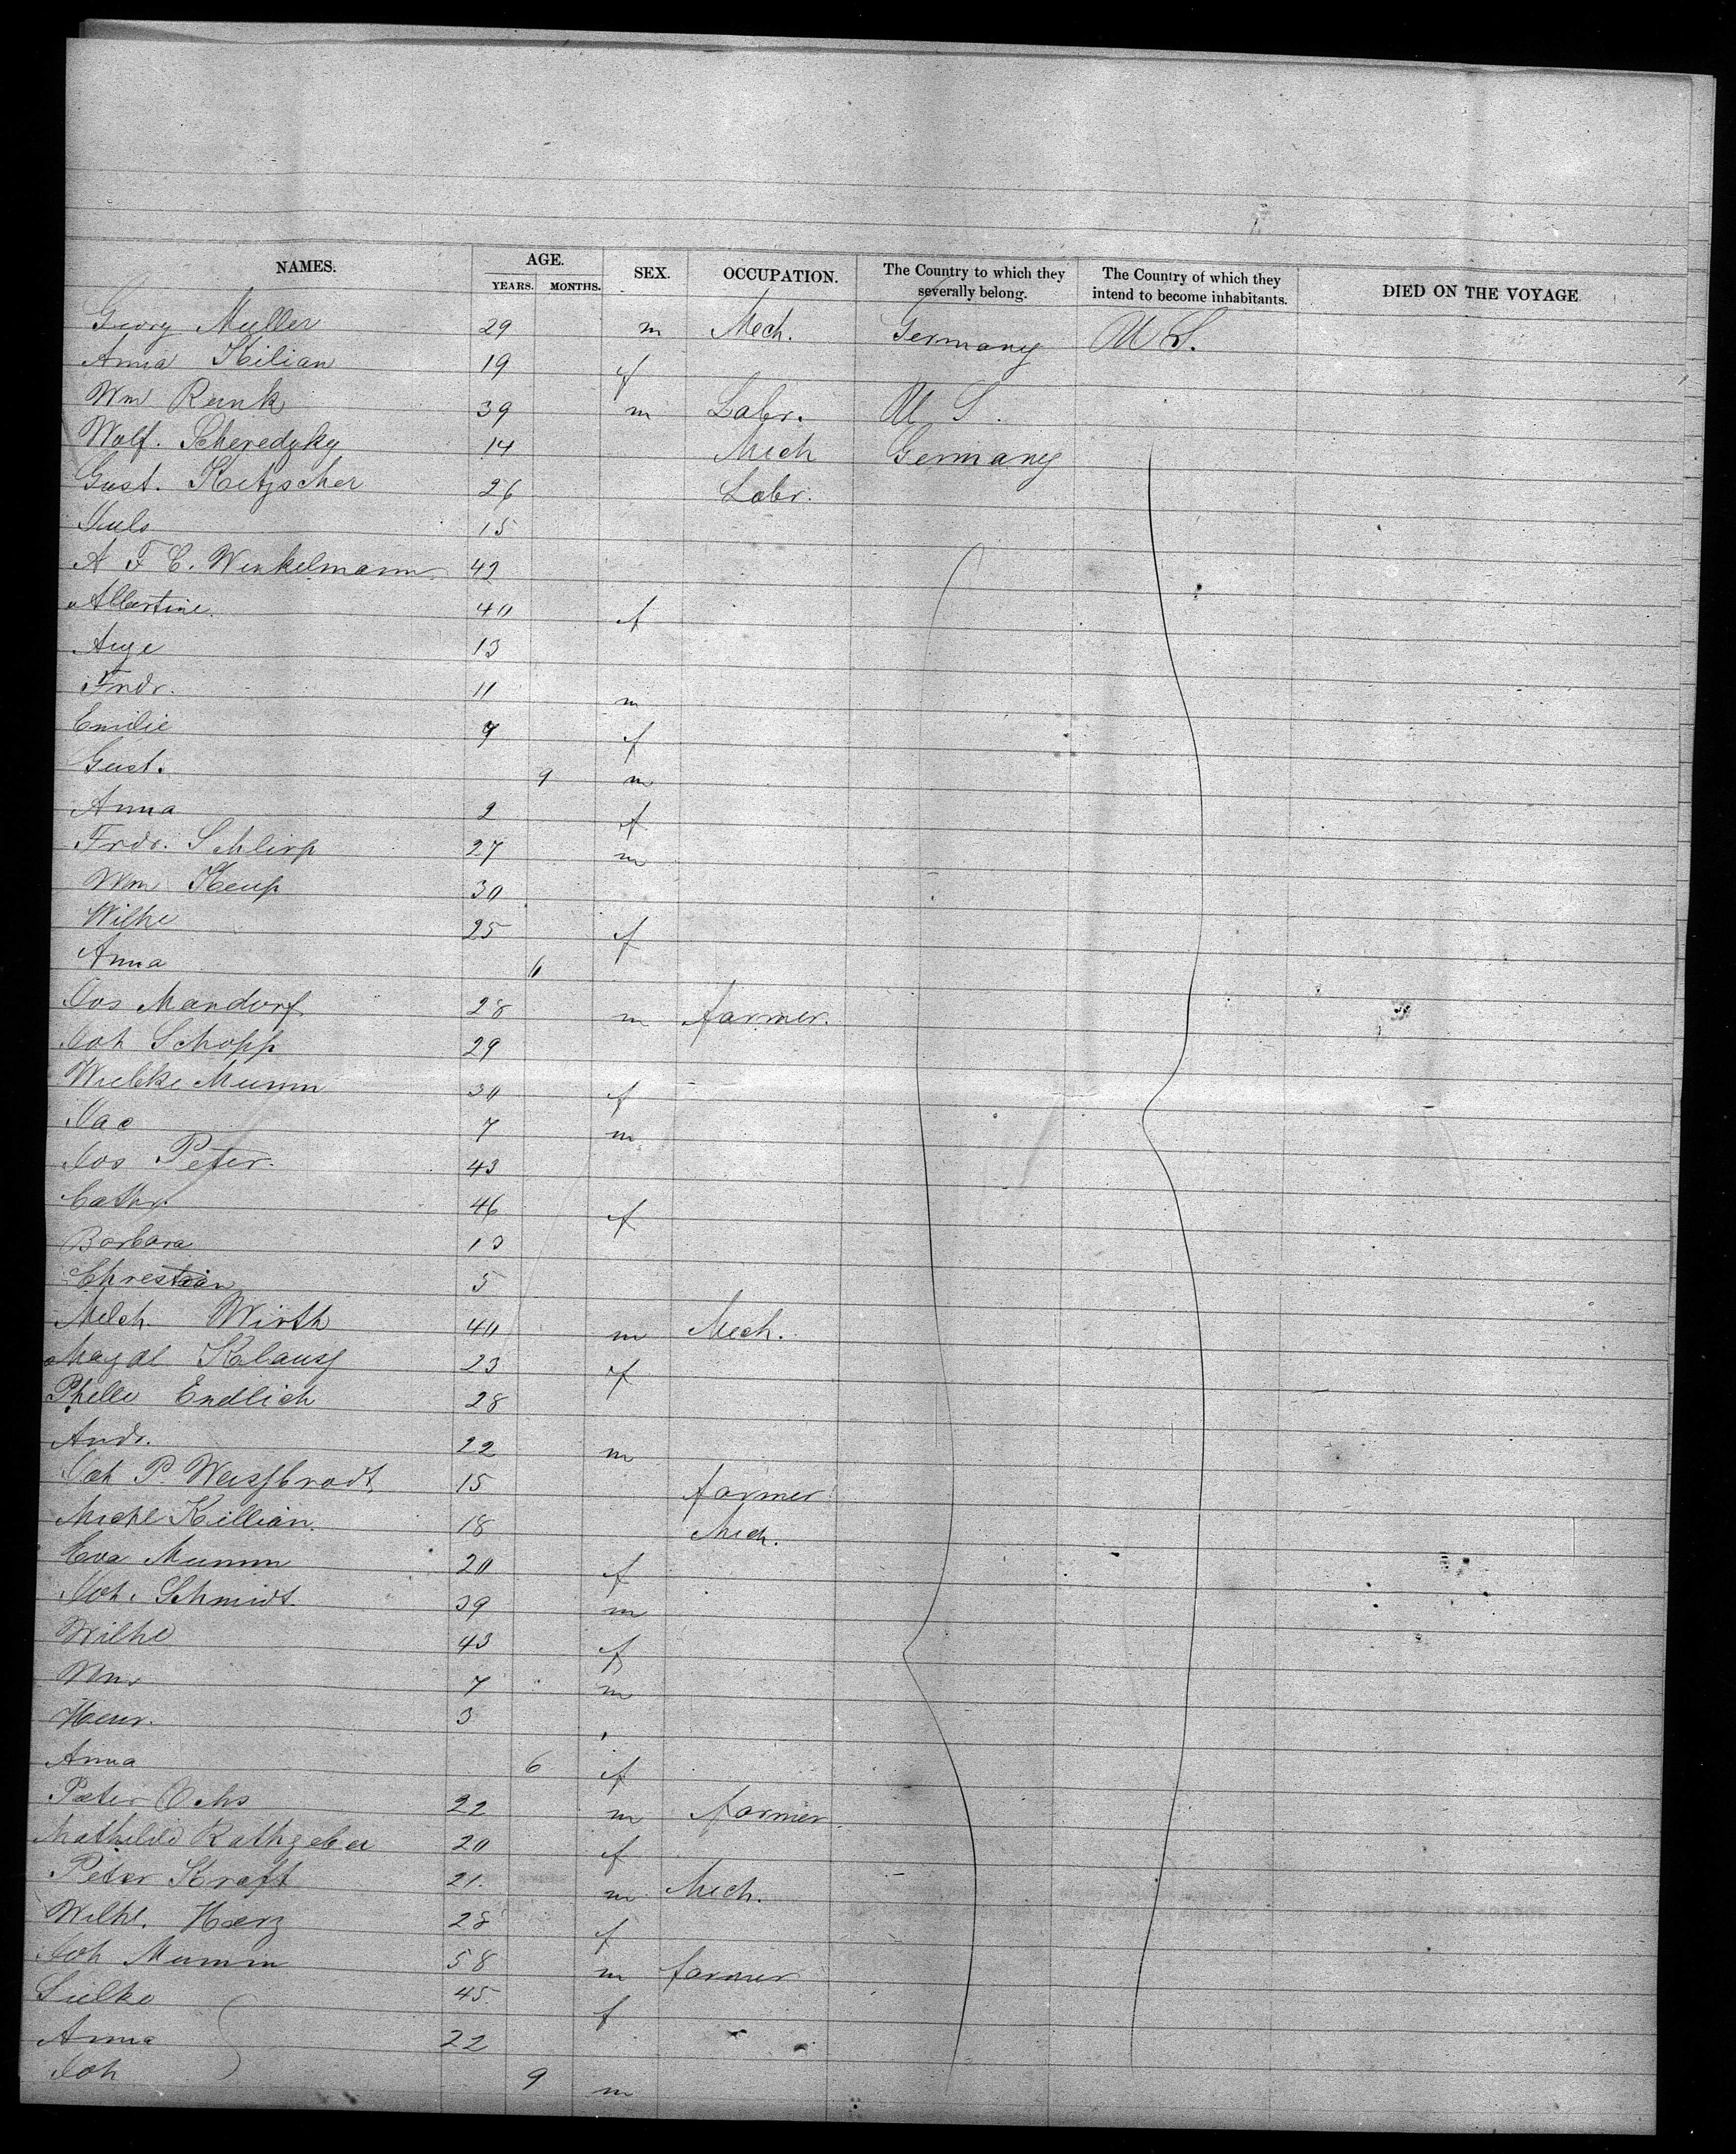 NAMES. AGE. SEX. OCCUPATION. The Country to which they severally belong. The Country of which they intend to become inhabitants. DIED ON THE VOYAGE
YEARS. MONTHS.
Georg Muller 29 m Mech. Germany U S.
Anna Kilian 19 f
Wm Runk 39 m Labr. U S.
Wolf. Scheredzky 14 Mech Germany
Gust. Ketzscher 26 Labr.
Juls 15
A F C. Winkelmann 42
Albertine 40 f
Auge 13
Fridr. 11 m
Emilie 9 f
Gust. 9 m
Anna 2 f
Frdr. Schlirp 27 m
Wm Keup 30
Wilhe 25 f
Anna 6
Jos Mandorf 28 m farmer.
Joh Schopp 29
Wiebke Mumm 30 f
Jac 7 m
Jos Peter. 43
Cathr. 46 f
Barbara 13
Christian 5
Melch. Wirth 40 m Mech.
Magdl Klauss 23 f
Phelle Endlich 28
Andr. 22 m
Joh P. Weissbrodt 15 farmer
Michl Killian. 18 Mech.
Eva Mumm 20 f
Joh. Schmidt. 39 m
Wilhe 43 f
Wm 7 m
Henr. 3
Anna 6 f
Peter Ochs 22 m farmer.
Mathilde Rathgeber 20 f
Peter Kraft 21. m Mech.
Wilhl. Herz 28 f
Joh Mumm 58 m farmer
Silke 45. f
Anna 22
Joh 9 m